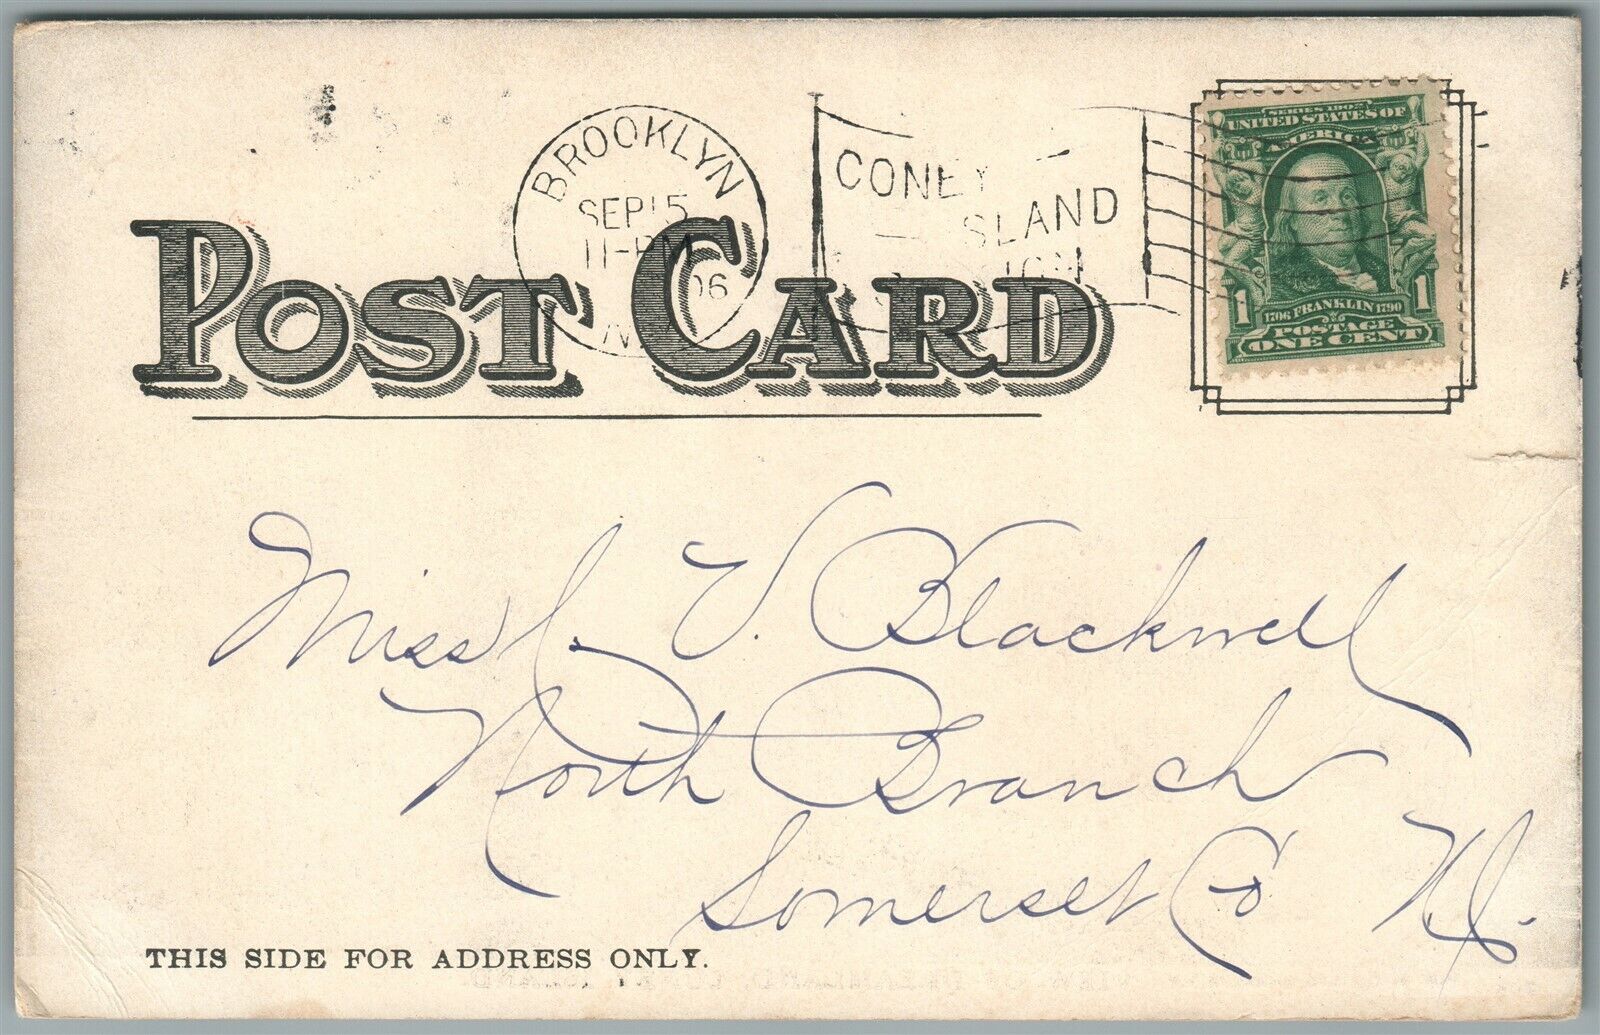 BROOKLYN
SEP 15
11-PM
06
N.
CONEY
ISLAND
SERIES 1902
UNITED STATES OF
AMERICA
1706 FRANKLIN 1790
1 1
POSTAGE
ONE CENT
POST CARD
Miss J. V. Blackwell
North Branch
Somerset Co N.J.
THIS SIDE FOR ADDRESS ONLY.